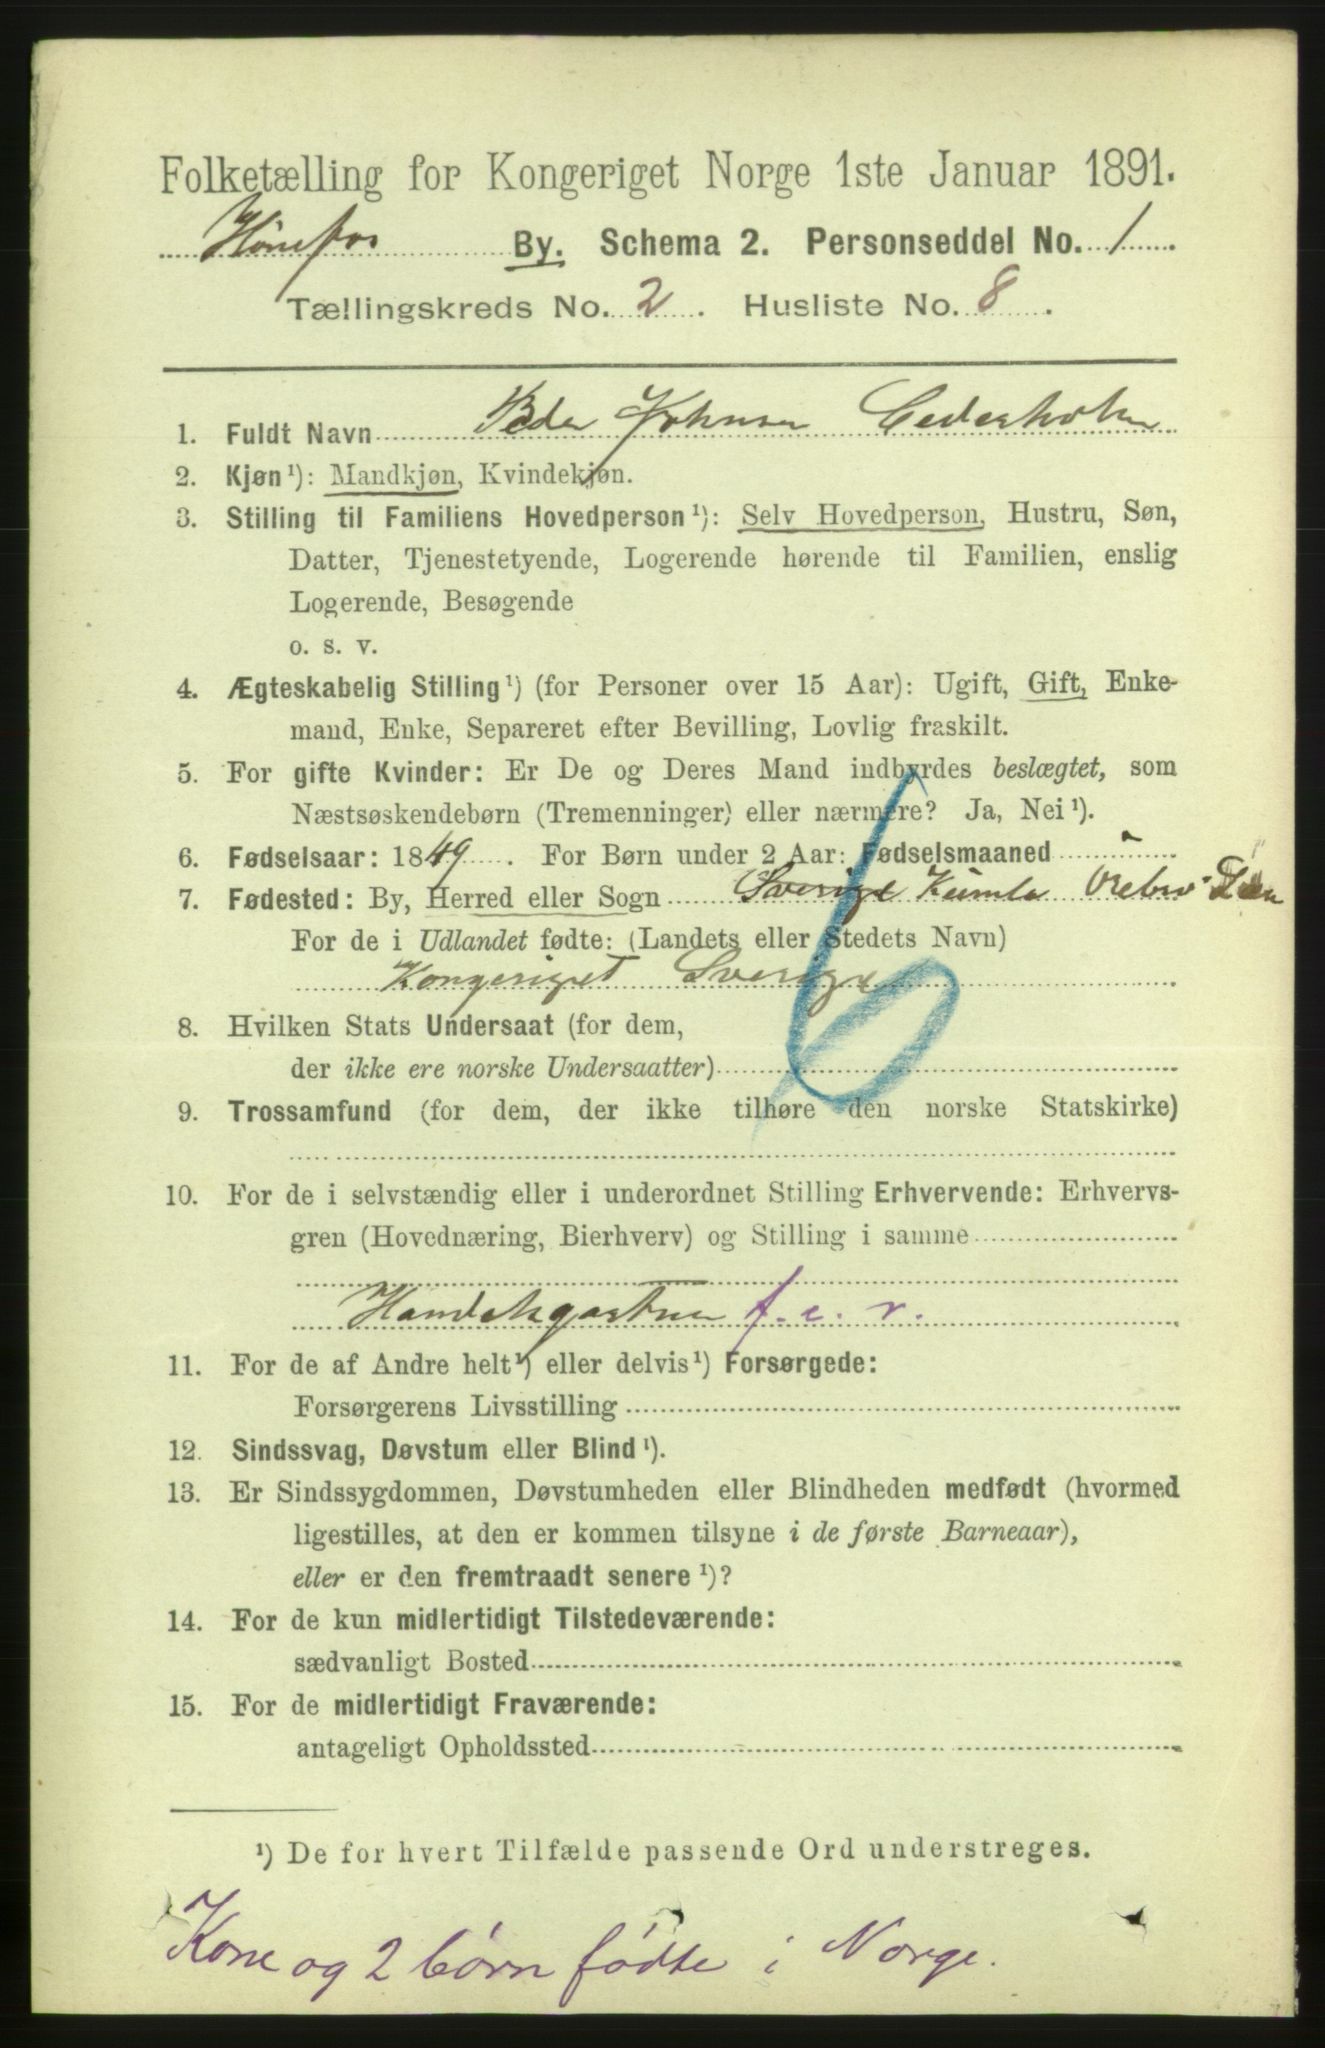 Folketælling for Kongeriget Norge 1ste Januar 1891.
Hønefos By. Schema 2. Personseddel No. 1
Tællingskreds No. 2. Husliste No. 8.
1. Fuldt Navn Peder Johnsen Cederholm
2. Kjøn¹): Mandkjøn, Kvindekjøn.
3. Stilling til Familiens Hovedperson¹): Selv Hovedperson, Hustru, Søn,
Datter, Tjenestetyende, Logerende hørende til Familien, enslig
Logerende, Besøgende
o. s. v.
4. Ægteskabelig Stilling¹) (for Personer over 15 Aar): Ugift, Gift, Enke-
mand, Enke, Separeret efter Bevilling, Lovlig fraskilt.
5. For gifte Kvinder: Er De og Deres Mand indbyrdes beslægtet, som
Næstsøskendebørn (Tremenninger) eller nærmere? Ja, Nei¹).
6. Fødselsaar: 1849. For Børn under 2 Aar: Fødselsmaaned
7. Fødested: By, Herred eller Sogn Sverige Kumla Örebro Län
For de i Udlandet fødte: (Landets eller Stedets Navn)
Kongeriget Sverige
8. Hvilken Stats Undersaat (for dem,
der ikke ere norske Undersaatter)
9. Trossamfund (for dem, der ikke tilhøre den norske Statskirke)
10. For de i selvstændig eller i underordnet Stilling Erhvervende: Erhvervs-
gren (Hovednæring, Bierhverv) og Stilling i samme
Handelsgartner f. e. r.
11. For de af Andre helt¹) eller delvis¹) Forsørgede:
Forsørgerens Livsstilling
12. Sindssvag, Døvstum eller Blind¹).
13. Er Sindssygdommen, Døvstumheden eller Blindheden medfødt (hvormed
ligestilles, at den er kommen tilsyne i de første Barneaar),
eller er den fremtraadt senere¹)?
14. For de kun midlertidigt Tilstedeværende:
sædvanligt Bosted
15. For de midlertidigt Fraværende:
antageligt Opholdssted
¹) De for hvert Tilfælde passende Ord understreges.
Kone og 2 börn födte i Norge.